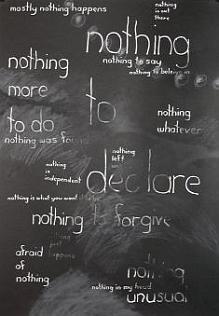 mostly nothing happens
nothing
is out
there
nothing
nothing to say
nothing to believe in
nothing
more
to do
to
nothing
whatever
nothing was found
nothing
left
nothing
is
independent
declare
nothing is what you want
nothing to forgive
nothing
just
happens
afraid
of
nothing
nothing
nothing in my head
unusual